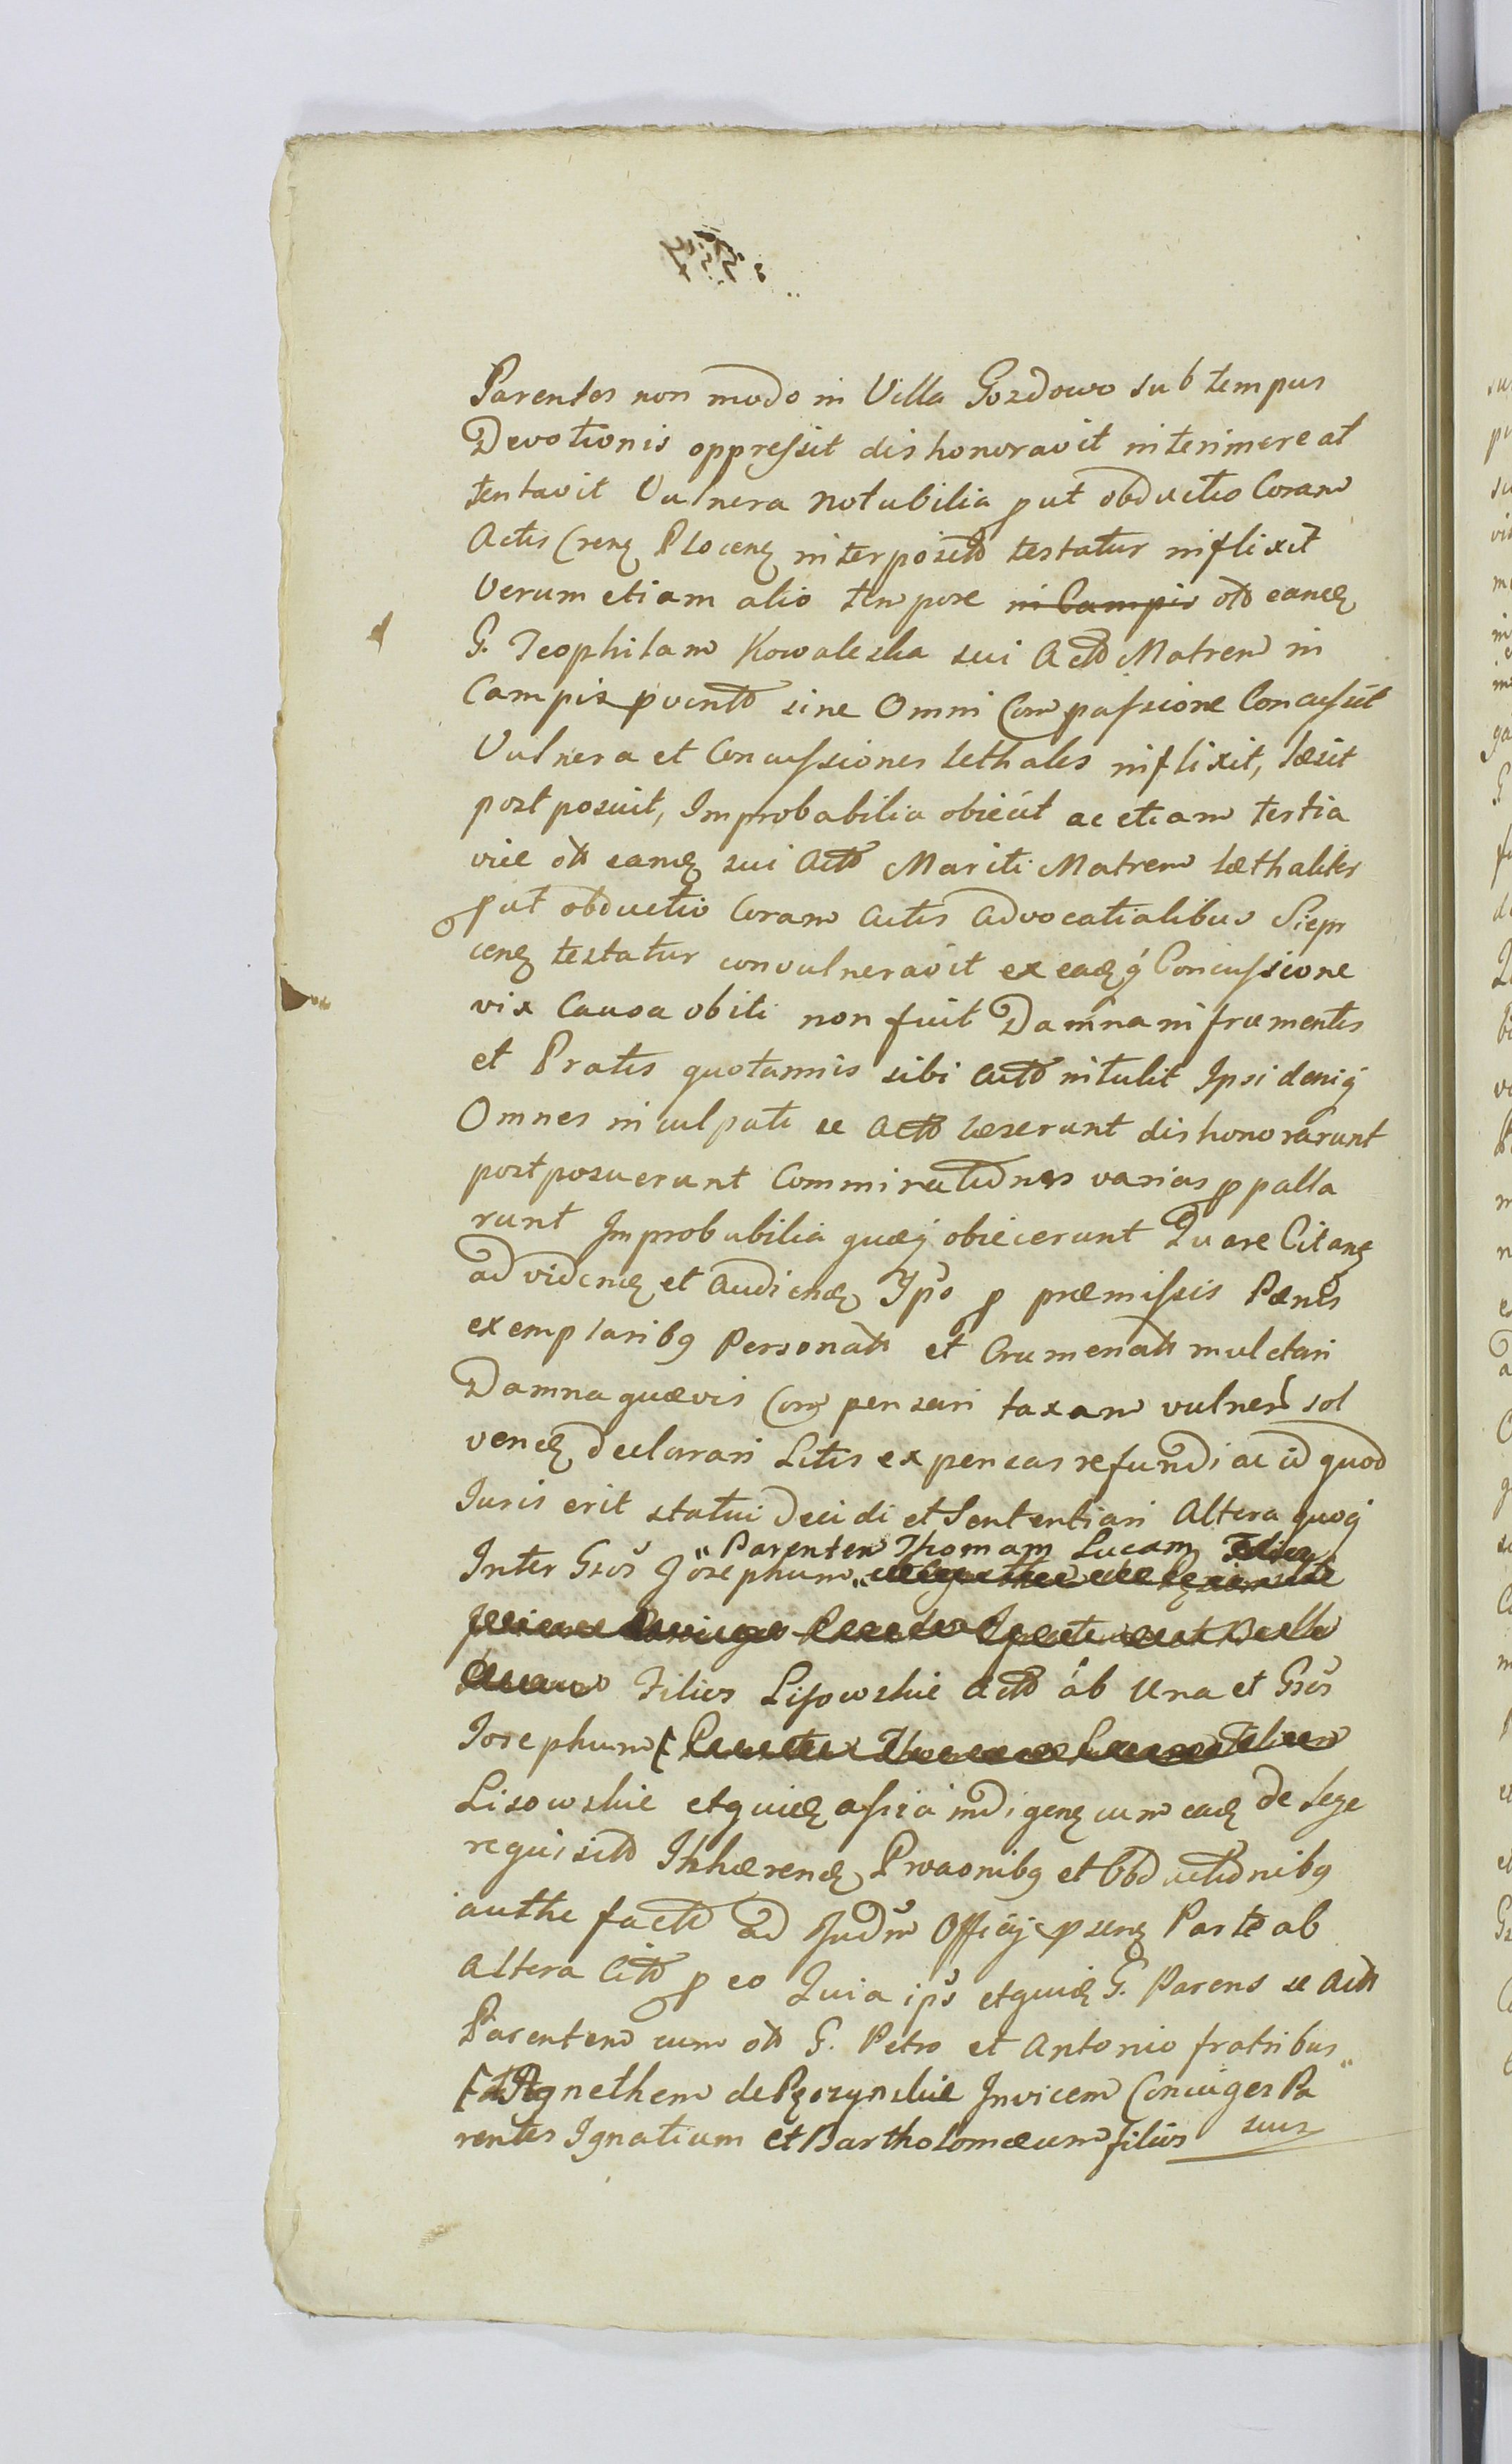 Parentes non modo in Villa Gozdowo sub tempus
Devotionis oppressit dishonoravit interimere at
tentavit Vulnera notabilia put obductio Coram
Actis Cren Plocen interposita testatur inflixit
Verum etiam alio tempore in Campis eand
G. Teophilam Kowalezka sui Act Matrem in
Campis sine Omni Compassione Concussit
Vulnera et Concussiones lethales inflixit, læsit
postposuit, Improbabilia obiecit ac etiam tertia
vice eand sui Act Mariti Matrem læthaliter
put obductio Coram Actis Advocatialibus Siepr
cen testatur convulneravit ex eadq Concussione
vix Causa obiti non fuit Damna in frumentis
et Pratis quotannis sibi Act intulit Ipsi deniq
Omnes inculpate se Act læserunt dishonorarunt
postposuerunt Comminationes varias ppalla
runt Improbabilia quæq obiecerunt Quare Citanz
ad vidend et audiend Ipso p præmissis Pænis
exemplaribq Personali et Crumenali mulctari
Damna quævis Compensari taxam vulner sol
vend declarari Litis expensas refundi ac id quod
Juris erit statui Decidi et Sententiari Altera quoq
" Parentem Thomam Lucam
Inter Gsos Josephum "
Filios Lisowskie Act ab Una et Gsos
Josephum [
Lisowskie etquid assia indigen cum ead de lege
requisita Inhærend Prvaonibq et Obductionibq
authe facto ad Judm Officij psens Parte ab
altera Cit p eo Quia ips etquid G. Parens se Act
Parentem cum G. Petro et Antonio fratribus "
[ Agnethem de Rzozynskie Invicem Coniuges Pa
rentes Ignatium et Bartholomæum filios suis